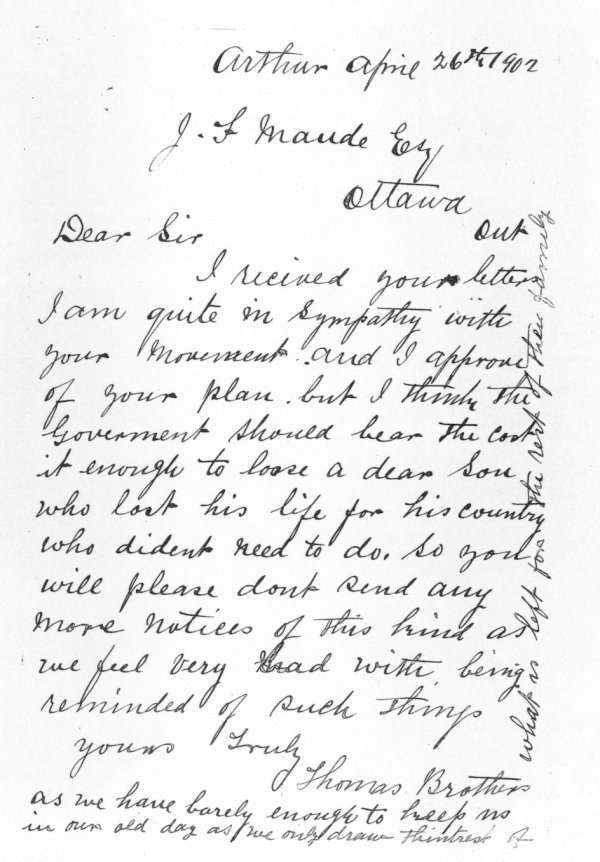 Arthur April 26th 1902
J. F Maude Esq
Ottawa
Ont
Dear Sir
I recived your letters
I am quite in sympathy with
your movement. and I approve
of your plan. but I think the
Goverment should bear the cost
it enough to loose a dear son
who lost his life for his country
who dident need to do. So you
will please dont send any
more notices of this kind as
we feel very bad with being
reminded of such things
yours truly
Thomas Brothers
as we have barely enough to keep us
in our old day as we only draw thintrest of
what is left for the rest of their family